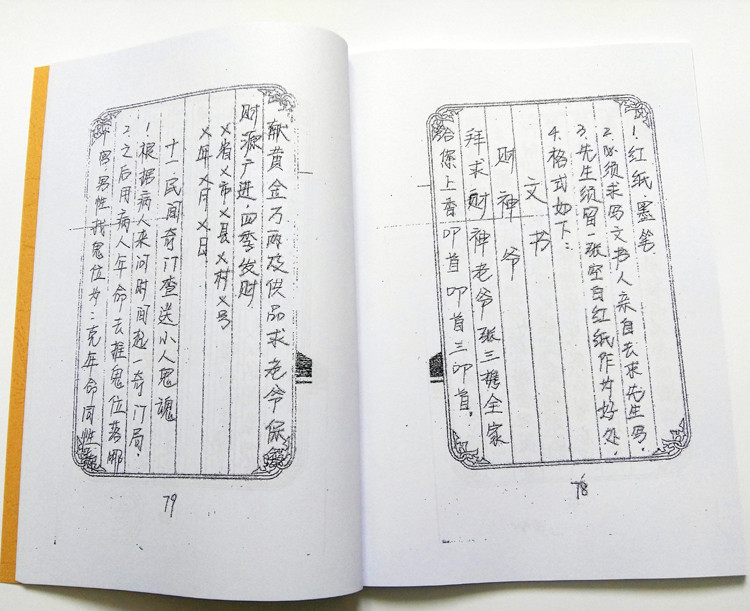 1.红纸墨笔
2.必须求写文书人亲自去求先生写.
3.先生须留一张空白红纸作为好处.
4.格式如下:
文书
财神爷
拜求财神老爷张三携全家
给您上香叩首叩首三叩首.
78
献黄金万两及供品求老爷保
财源广进.四季发财
X省X市X县X村X号
X年X月X日
十一民间奇门查送小人鬼魂
1.根据病人来问时间起一奇门局.
2.之后用病人年命去推鬼位落哪
个宫.男性找鬼位为:克年命同性
79